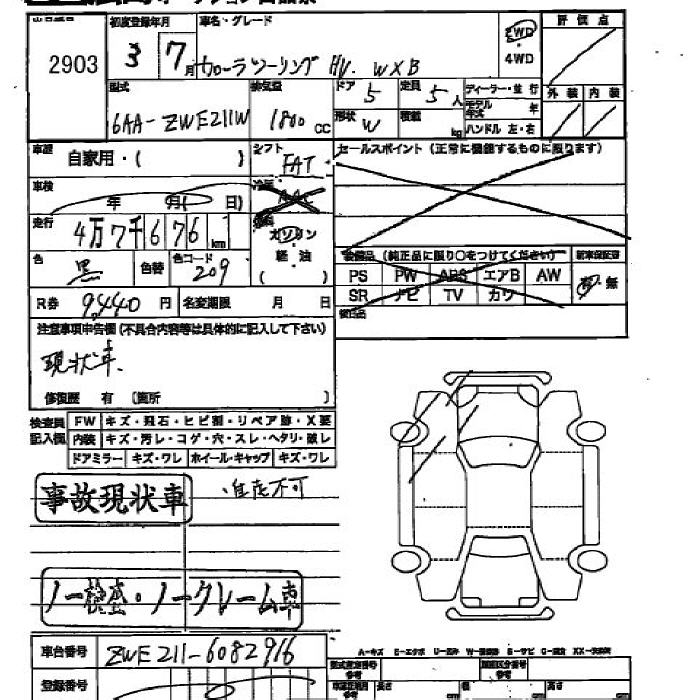 2903
初度登録年月
3 7月
車名・グレード
カローラツーリング HV. WXB
2WD
・
4WD
評価点
型式
6AA-ZWE211W
排気量
1800 CC
ドア 5
定員 5人
形状 W
積載 kg
ディーラー・並行
モデル年式 年
ハンドル 左・右
外装 内装
車歴 自家用・( )
シフト FAT
セールスポイント(正常に機能するものに限ります)
車検 年 月( 日)
冷房 AAC
走行 4万7千676 km
燃料 ガソリン
軽油
( )
色 黒
色替
色コード 209
装備品(純正品に限り○をつけてください)
新車保証書
PS PW ABS エアB AW
SR ナビ TV カワ
有・無
R券 9,440 円
名変期限 月 日
注意事項申告欄(不具合内容等は具体的に記入して下さい)
現状車.
修復歴 有 (箇所
検査員記入欄
FW キズ・飛石・ヒビ割・リペア跡・X要
内装 キズ・汚レ・コゲ・穴・スレ・ヘタリ・破レ
ドアミラー キズ・ワレ ホイール・キャップ キズ・ワレ
事故現状車
・自走不可
ノー検査・ノークレーム車
車台番号 ZWE211-6082916
登録番号
型式指定番号
参考
類別区分番号
参考
長さ cm
幅 cm
高さ cm